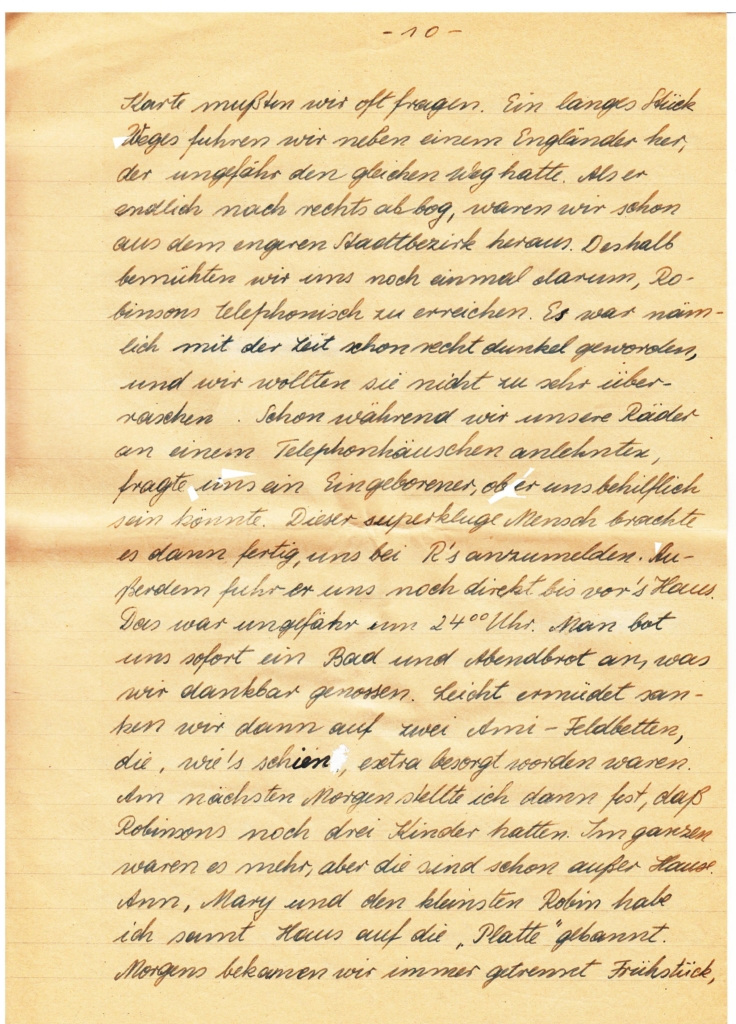 - 10 -
Karte mußten wir oft fragen. Ein langes Stück
Weges fuhren wir neben einem Engländer her,
der ungefähr den gleichen Weg hatte. Als er
endlich nach rechts ab bog, waren wir schon
aus dem engeren Stadtbezirk heraus. Deshalb
bemühten wir uns noch einmal darum, Ro-
binsons telephonisch zu erreichen. Es war näm-
lich mit der Zeit schon recht dunkel geworden,
und wir wollten sie nicht zu sehr über-
raschen. Schon während wir unsere Räder
an einem Telephonhäuschen anlehnten,
fragte uns ein Eingeborener, ob er uns behilflich
sein könnte. Dieser superkluge Mensch brachte
es dann fertig, uns bei R's anzumelden. Au-
ßerdem fuhr er uns noch direkt bis vor's Haus.
Das war ungefähr um 24⁰⁰ Uhr. Man bot
uns sofort ein Bad und Abendbrot an, was
wir dankbar genossen. Leicht ermüdet san-
ken wir dann auf zwei Ami-Feldbetten,
die, wie's schien, extra besorgt worden waren.
Am nächsten Morgen stellte ich dann fest, daß
Robinsons noch drei Kinder hatten. Im ganzen
waren es mehr, aber die sind schon außer Hause.
Ann, Mary und den kleinsten Robin habe
ich samt Haus auf die „Platte" gebannt.
Morgens bekamen wir immer getrennt Frühstück,